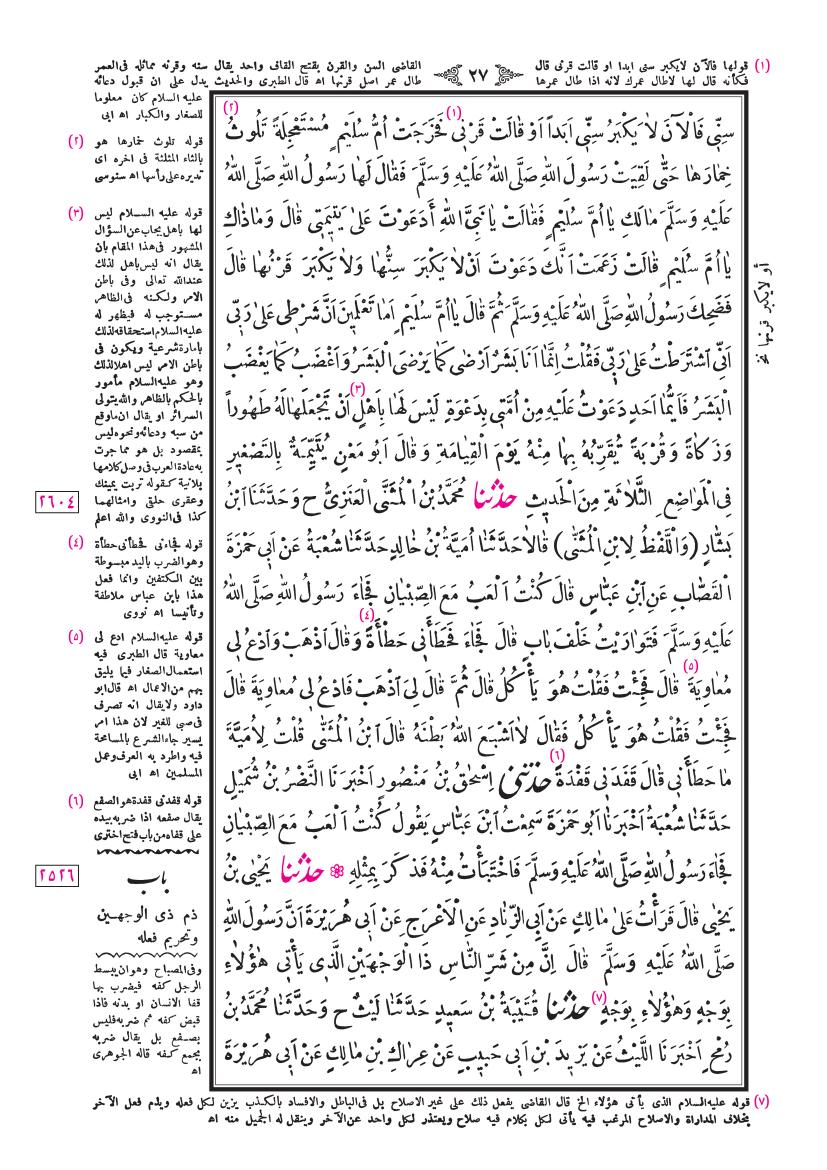 (١) قولها فالآن لايكبر سنى ابدا او قالت قرنى قال
فكأنه قال لها لاطال عمرك لانه اذا طال عمرها
٢٧
القاضى السن والقرن بفتح القاف واحد يقال سنه وقرنه مماثله فى العمر
طال عمر اصل قرنها اه قال الطبرى والحديث يدل على ان قبول دعائه
عليه السلام كان معلوما
للصغار والكبار اه ابى
سِنِّى فَالْآنَ لَا يَكْبَرُ سِنِّى اَبَداً اَوْ قَالَتْ قَرْنِى (١) فَخَرَجَتْ اُمُّ سُلَيْمٍ مُسْتَعْجِلَةً تَلُوثُ (٢)
خِمَارَهَا حَتّٰى لَقِيَتْ رَسُولَ اللهِ صَلَّى اللهُ عَلَيْهِ وَسَلَّمَ فَقَالَ لَهَا رَسُولُ اللهِ صَلَّى اللهُ
عَلَيْهِ وَسَلَّمَ مَالَكِ يَا اُمَّ سُلَيْمٍ فَقَالَتْ يَا نَبِىَّ اللهِ أَدَعَوْتَ عَلٰى يَتِيمَتِى قَالَ وَمَاذَاكِ
يَا اُمَّ سُلَيْمٍ قَالَتْ زَعَمَتْ اَنَّكَ دَعَوْتَ اَنْ لَا يَكْبَرَ سِنُّهَا وَلَا يَكْبَرَ قَرْنُهَا قَالَ
فَضَحِكَ رَسُولُ اللهِ صَلَّى اللهُ عَلَيْهِ وَسَلَّمَ ثُمَّ قَالَ يَا اُمَّ سُلَيْمٍ اَمَا تَعْلَمِينَ اَنَّ شَرْطِى عَلٰى رَبِّى
اَنِّى اشْتَرَطْتُ عَلٰى رَبِّى فَقُلْتُ اِنَّمَا اَنَا بَشَرٌ اَرْضٰى كَمَا يَرْضَى الْبَشَرُ وَاَغْضَبُ كَمَا يَغْضَبُ
الْبَشَرُ فَاَيُّمَا اَحَدٍ دَعَوْتُ عَلَيْهِ مِنْ اُمَّتِى بِدَعْوَةٍ لَيْسَ لَهَا بِاَهْلٍ (٣) اَنْ تَجْعَلَهَا لَهُ طَهُوراً
وَزَكَاةً وَقُرْبَةً تُقَرِّبُهُ بِهَا مِنْهُ يَوْمَ الْقِيَامَةِ وَقَالَ اَبُو مَعْنٍ يُتَيِّمَةٌ بِالتَّصْغِيرِ
فِى الْمَوَاضِعِ الثَّلَاثَةِ مِنَ الْحَدِيثِ حَدَّثَنَا مُحَمَّدُ بْنُ الْمُثَنَّى الْعَنَزِىُّ ح وَحَدَّثَنَا ابْنُ
بَشَّارٍ (وَاللَّفْظُ لِابْنِ الْمُثَنَّى) قَالَا حَدَّثَنَا اُمَيَّةُ بْنُ خَالِدٍ حَدَّثَنَا شُعْبَةُ عَنْ اَبِى حَمْزَةَ
الْقَصَّابِ عَنِ ابْنِ عَبَّاسٍ قَالَ كُنْتُ اَلْعَبُ مَعَ الصِّبْيَانِ فَجَاءَ رَسُولُ اللهِ صَلَّى اللهُ
عَلَيْهِ وَسَلَّمَ فَتَوَارَيْتُ خَلْفَ بَابٍ قَالَ فَجَاءَ فَحَطَأَنِى حَطْأَةً (٤) وَقَالَ اذْهَبْ وَادْعُ لِى
مُعَاوِيَةَ (٥) قَالَ فَجِئْتُ فَقُلْتُ هُوَ يَأْكُلُ قَالَ ثُمَّ قَالَ لِىَ اذْهَبْ فَادْعُ لِى مُعَاوِيَةَ قَالَ
فَجِئْتُ فَقُلْتُ هُوَ يَأْكُلُ فَقَالَ لَا اَشْبَعَ اللهُ بَطْنَهُ قَالَ ابْنُ الْمُثَنَّى قُلْتُ لِاُمَيَّةَ
مَا حَطَأَنِى قَالَ قَفَدَنِى قَفْدَةً (٦) حَدَّثَنِى اِسْحٰقُ بْنُ مَنْصُورٍ اَخْبَرَنَا النَّضْرُ بْنُ شُمَيْلٍ
حَدَّثَنَا شُعْبَةُ اَخْبَرَنَا اَبُو حَمْزَةَ سَمِعْتُ ابْنَ عَبَّاسٍ يَقُولُ كُنْتُ اَلْعَبُ مَعَ الصِّبْيَانِ
فَجَاءَ رَسُولُ اللهِ صَلَّى اللهُ عَلَيْهِ وَسَلَّمَ فَاخْتَبَأْتُ مِنْهُ فَذَكَرَ بِمِثْلِهِ حَدَّثَنَا يَحْيَى بْنُ
يَحْيٰى قَالَ قَرَأْتُ عَلٰى مَالِكٍ عَنْ اَبِى الزِّنَادِ عَنِ الْاَعْرَجِ عَنْ اَبِى هُرَيْرَةَ اَنَّ رَسُولَ اللهِ
صَلَّى اللهُ عَلَيْهِ وَسَلَّمَ قَالَ اِنَّ مِنْ شَرِّ النَّاسِ ذَا الْوَجْهَيْنِ الَّذِى يَأْتِى هٰؤُلَاءِ
بِوَجْهٍ وَهٰؤُلَاءِ بِوَجْهٍ (٧) حَدَّثَنَا قُتَيْبَةُ بْنُ سَعِيدٍ حَدَّثَنَا لَيْثٌ ح وَحَدَّثَنَا مُحَمَّدُ بْنُ
رُمْحٍ اَخْبَرَنَا اللَّيْثُ عَنْ يَزِيدَ بْنِ اَبِى حَبِيبٍ عَنْ عِرَاكِ بْنِ مَالِكٍ عَنْ اَبِى هُرَيْرَةَ
أو لايكبر قرنها نخ
(٢) قوله تلوث خمارها هو
بالثاء المثلثة فى اخره اى
تديره على رأسها اه سنوسى
(٣) قوله عليه السلام ليس
لها باهل يجاب عن السؤال
المشهور فى هذا المقام بان
يقال انه ليس باهل لذلك
عندالله تعالى وفى باطن
الامر ولكنه فى الظاهر
مستوجب له فيظهر له
عليه السلام استحقاقه لذلك
بامارة شرعية ويكون فى
باطن الامر ليس اهلا لذلك
وهو عليه السلام مأمور
بالحكم بالظاهر والله يتولى
السرائر او يقال ان ماوقع
من سبه ودعائه ونحوه ليس
بمقصود بل هو مما جرت
به عادة العرب فى وصل كلامها
بلانية كقوله تربت يمينك
وعقرى حلقى وامثالهما
كذا فى النووى والله اعلم
٢٦٠٤
(٤) قوله فجاءنى فحطأنى حطأة
وهو الضرب باليد مبسوطة
بين الكتفين وانما فعل
هذا بابن عباس ملاطفة
وتأنيسا اه نووى
(٥) قوله عليه السلام ادع لى
معاوية قال الطبرى فيه
استعمال الصغار فيما يليق
بهم من الاعمال اه قال ابو
داود ولايقال انه تصرف
فى صبى للغير لان هذا امر
يسير جاء الشرع بالمسامحة
فيه واطرد به العرف وعمل
المسلمين اه ابى
(٦) قوله قفدنى قفدة هو الصقع
يقال صفعه اذا ضربه بيده
على قفاه من باب فتح اخترى
٢٥٢٦
باب
ذم ذى الوجهين
وتحريم فعله
وفى المصباح وهو ان يبسط
الرجل كفه فيضرب بها
قفا الانسان او بدنه فاذا
قبض كفه ثم ضربه فليس
بصفع بل يقال ضربه
بجمع كفه قاله الجوهرى
اه
(٧) قوله عليه السلام الذى يأتى هؤلاء الخ قال القاضى يفعل ذلك على غير الاصلاح بل فى الباطل والافساد بالكذب يزين لكل فعله ويذم فعل الآخر
بخلاف المداراة والاصلاح المرغب فيه يأتى لكل بكلام فيه صلاح ويعتذر لكل واحد عن الآخر وينقل له الجميل منه اه